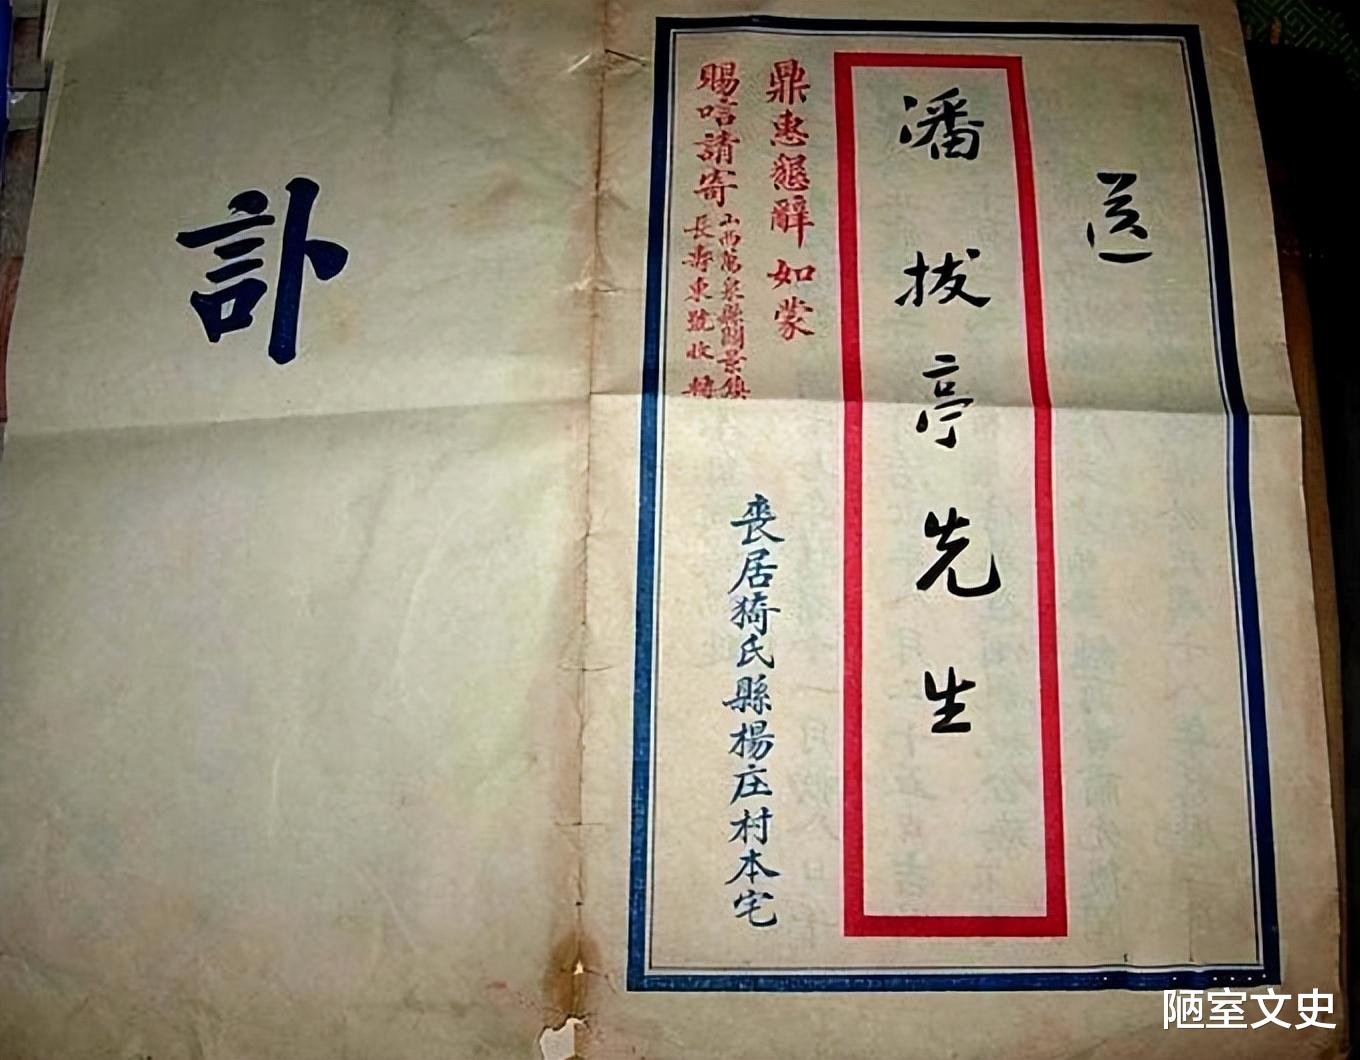 送
潘拔亭先生
鼎惠懇辭 如蒙
賜唁請寄
山西萬泉縣閻景鎮
長壽東號收轉
喪居猗氏縣楊庄村本宅
訃
陋室文史